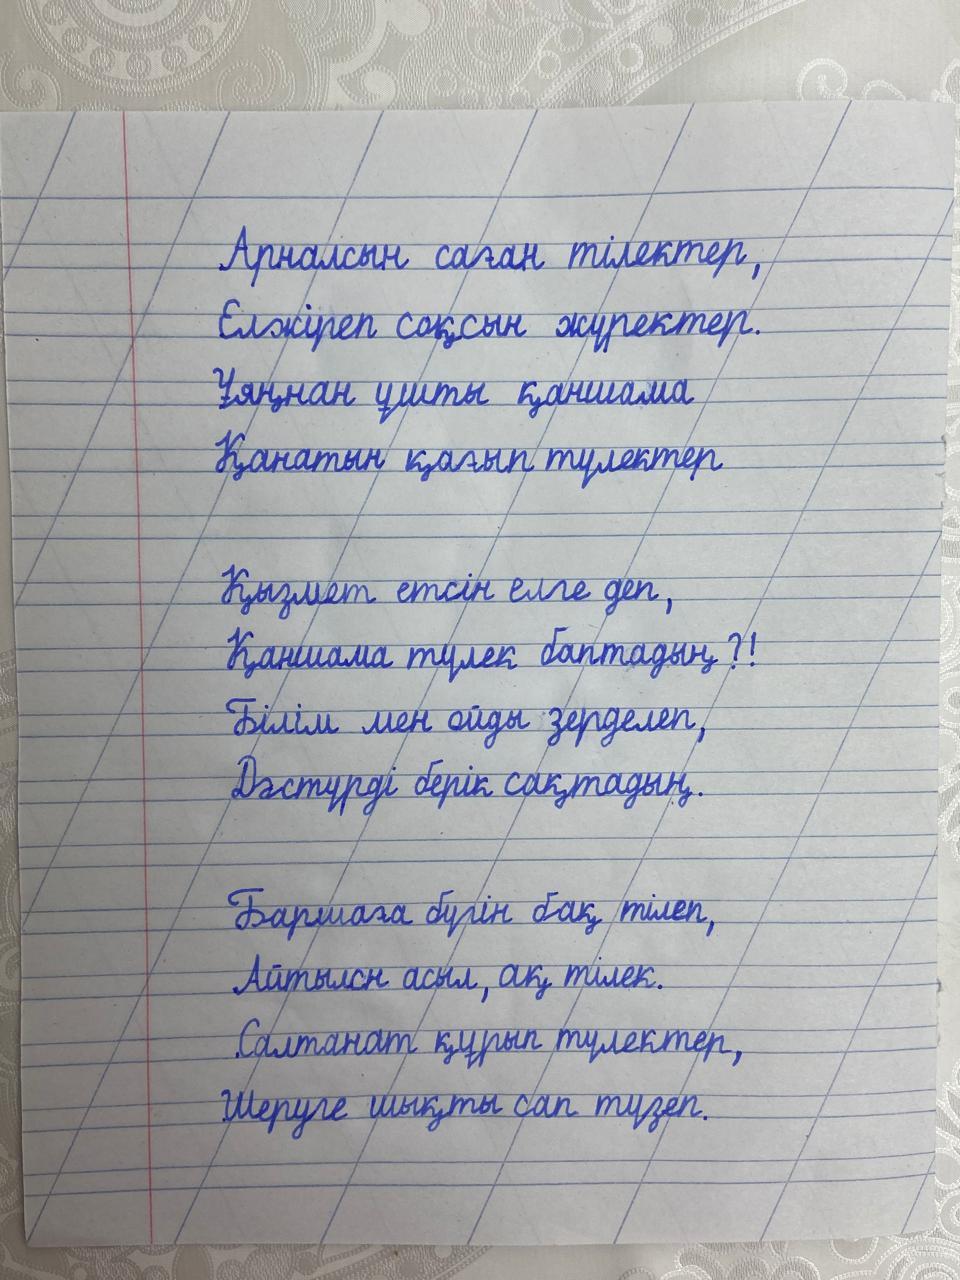 Арналсын саған тілектер,
Елжіреп соқсын жүректер.
Ұяңнан ұшты қаншама
Қанатын қағып түлектер
Қызмет етсін елге деп,
Қаншама түлек баптадың?!
Білім мен ойды зерделеп,
Дәстүрді берік сақтадың.
Баршаға бүгін бақ тілеп,
Айтылсн асыл, ақ тілек.
Салтанат құрып түлектер,
Шеруге шықты сап түзеп.